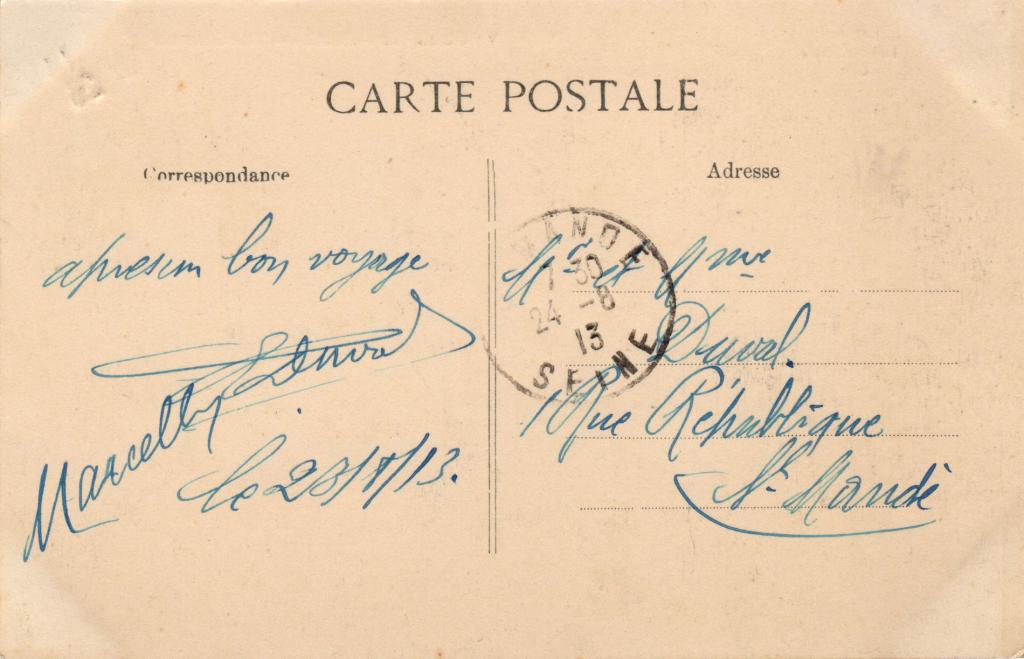 CARTE POSTALE
Correspondance
Adresse
bon voyage
Duval
Marcelly
le 23/8/13.
MANDE
1 30
24 -8
13
SEINE
Mr et Mme
Duval.
1 Rue République
St Mandé